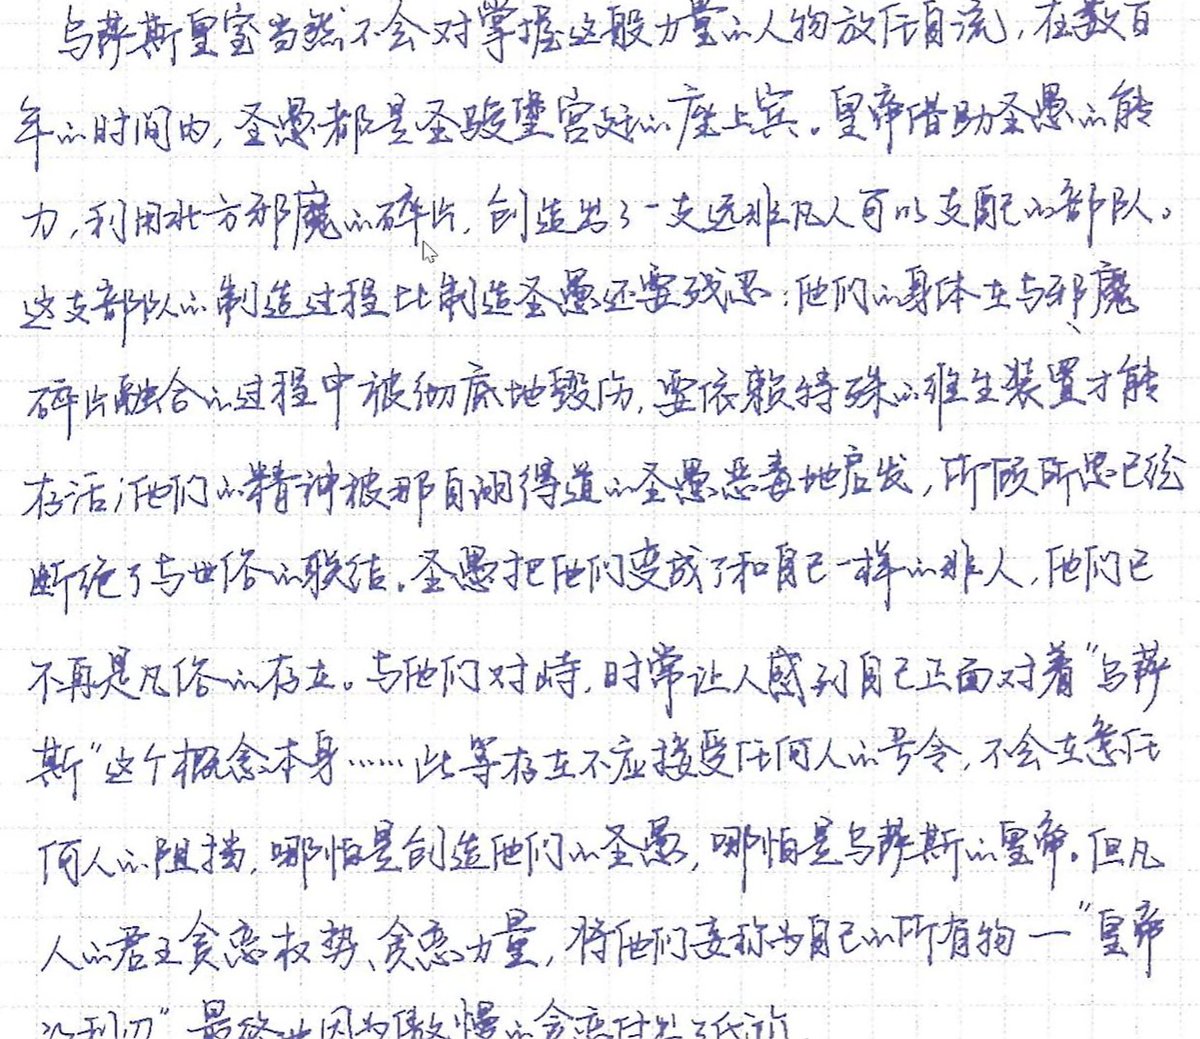 乌萨斯皇室当然不会对掌握这般力量的人物放任自流，在数百
年的时间内，圣愚都是圣骏堡宫廷的座上宾。皇帝借助圣愚的能
力，利用北方邪魔的碎片，创造出了一支远非凡人可以支配的部队。
这支部队的制造过程比制造圣愚还要残忍：他们的身体在与邪魔
碎片融合的过程中被彻底地毁伤，要依赖特殊的维生装置才能
存活；他们的精神被那自诩得道的圣愚恶毒地启发，所顾所思已经
断绝了与世俗的联结。圣愚把他们变成了和自己一样的非人，他们已
不再是凡俗的存在。与他们对峙，时常让人感到自己正面对着“乌萨
斯”这个概念本身……此等存在不应接受任何人的号令，不会在意任
何人的阻挡，哪怕是创造他们的圣愚，哪怕是乌萨斯的皇帝。但凡
人的君王贪恋权势、贪恋力量，将他们妄称为自己的所有物—“皇帝
的利刃”最终也因为傲慢的贪恋付出了代价